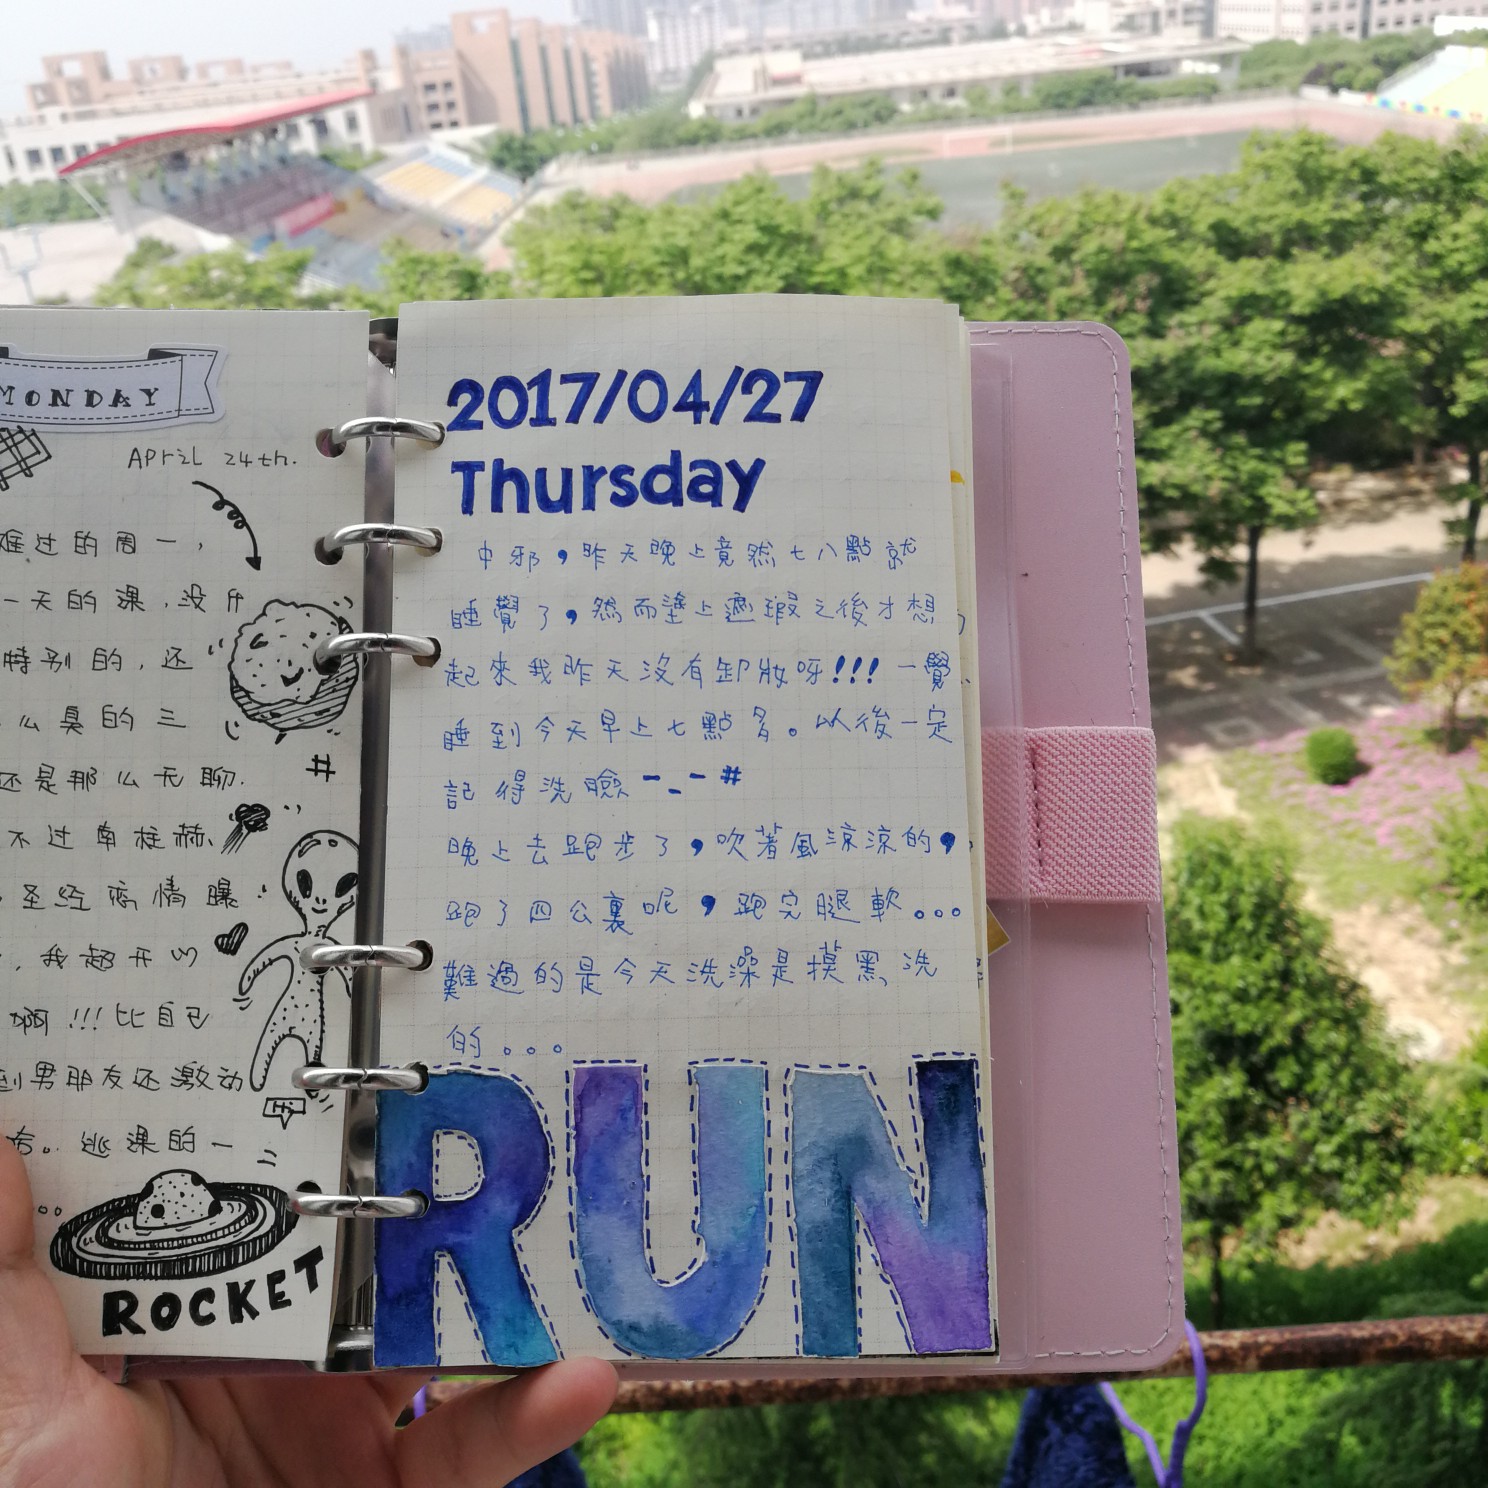 MONDAY
April 24th.
难过的周一，
一天的课，没什
特别的，还
么臭的三
还是那么无聊.
不过南柱赫、
圣经恋情曝
，我超开心
啊!!!比自己
到男朋友还激动
逃课的一
...
ROCKET
2017/04/27
Thursday
中邪，昨天晚上竟然七八點就
睡覺了，然而塗上遮瑕之後才想
起來我昨天沒有卸妝呀!!!一覺
睡到今天早上七點多。以後一定
記得洗臉-_-#
晚上去跑步了，吹著風涼涼的，
跑了四公裏呢，跑完腿軟。。。
難過的是今天洗澡是摸黑洗
的。。。
RUN